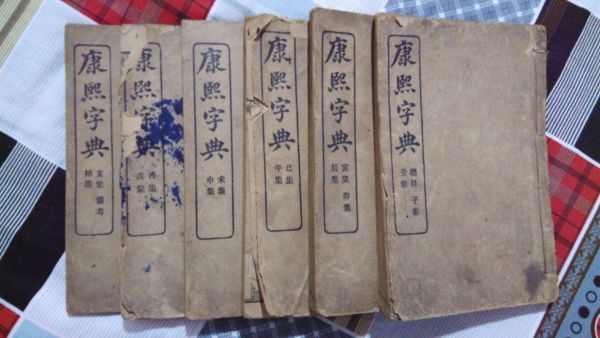 康熙字典
總目 子集
丑集
康熙字典
寅集 卯集
辰集
康熙字典
巳集
午集
康熙字典
未集
申集
康熙字典
酉集
戌集
康熙字典
亥集 備考
補遺